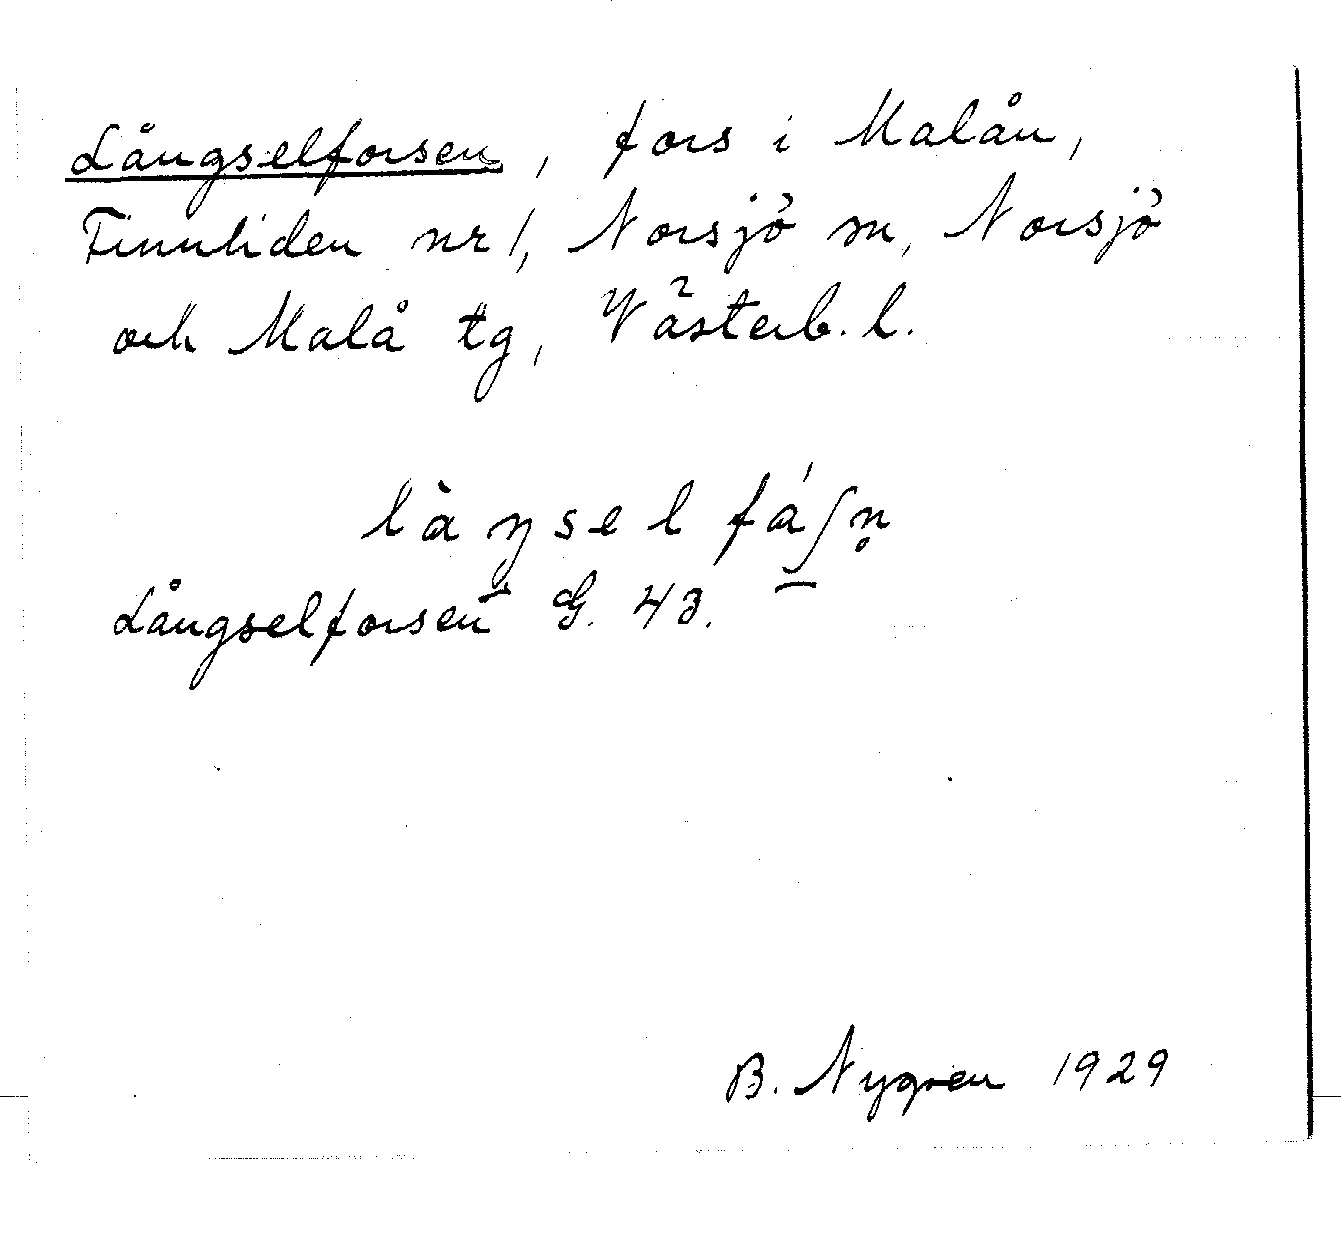 Långselforsen, fors i Malån,
Finnliden nr 1, Norsjö sn, Norsjö
och Malå tg, Västerb. l.
làŋsel fáʃn̥
Långselforsen G. 43.
B. Nygren 1929